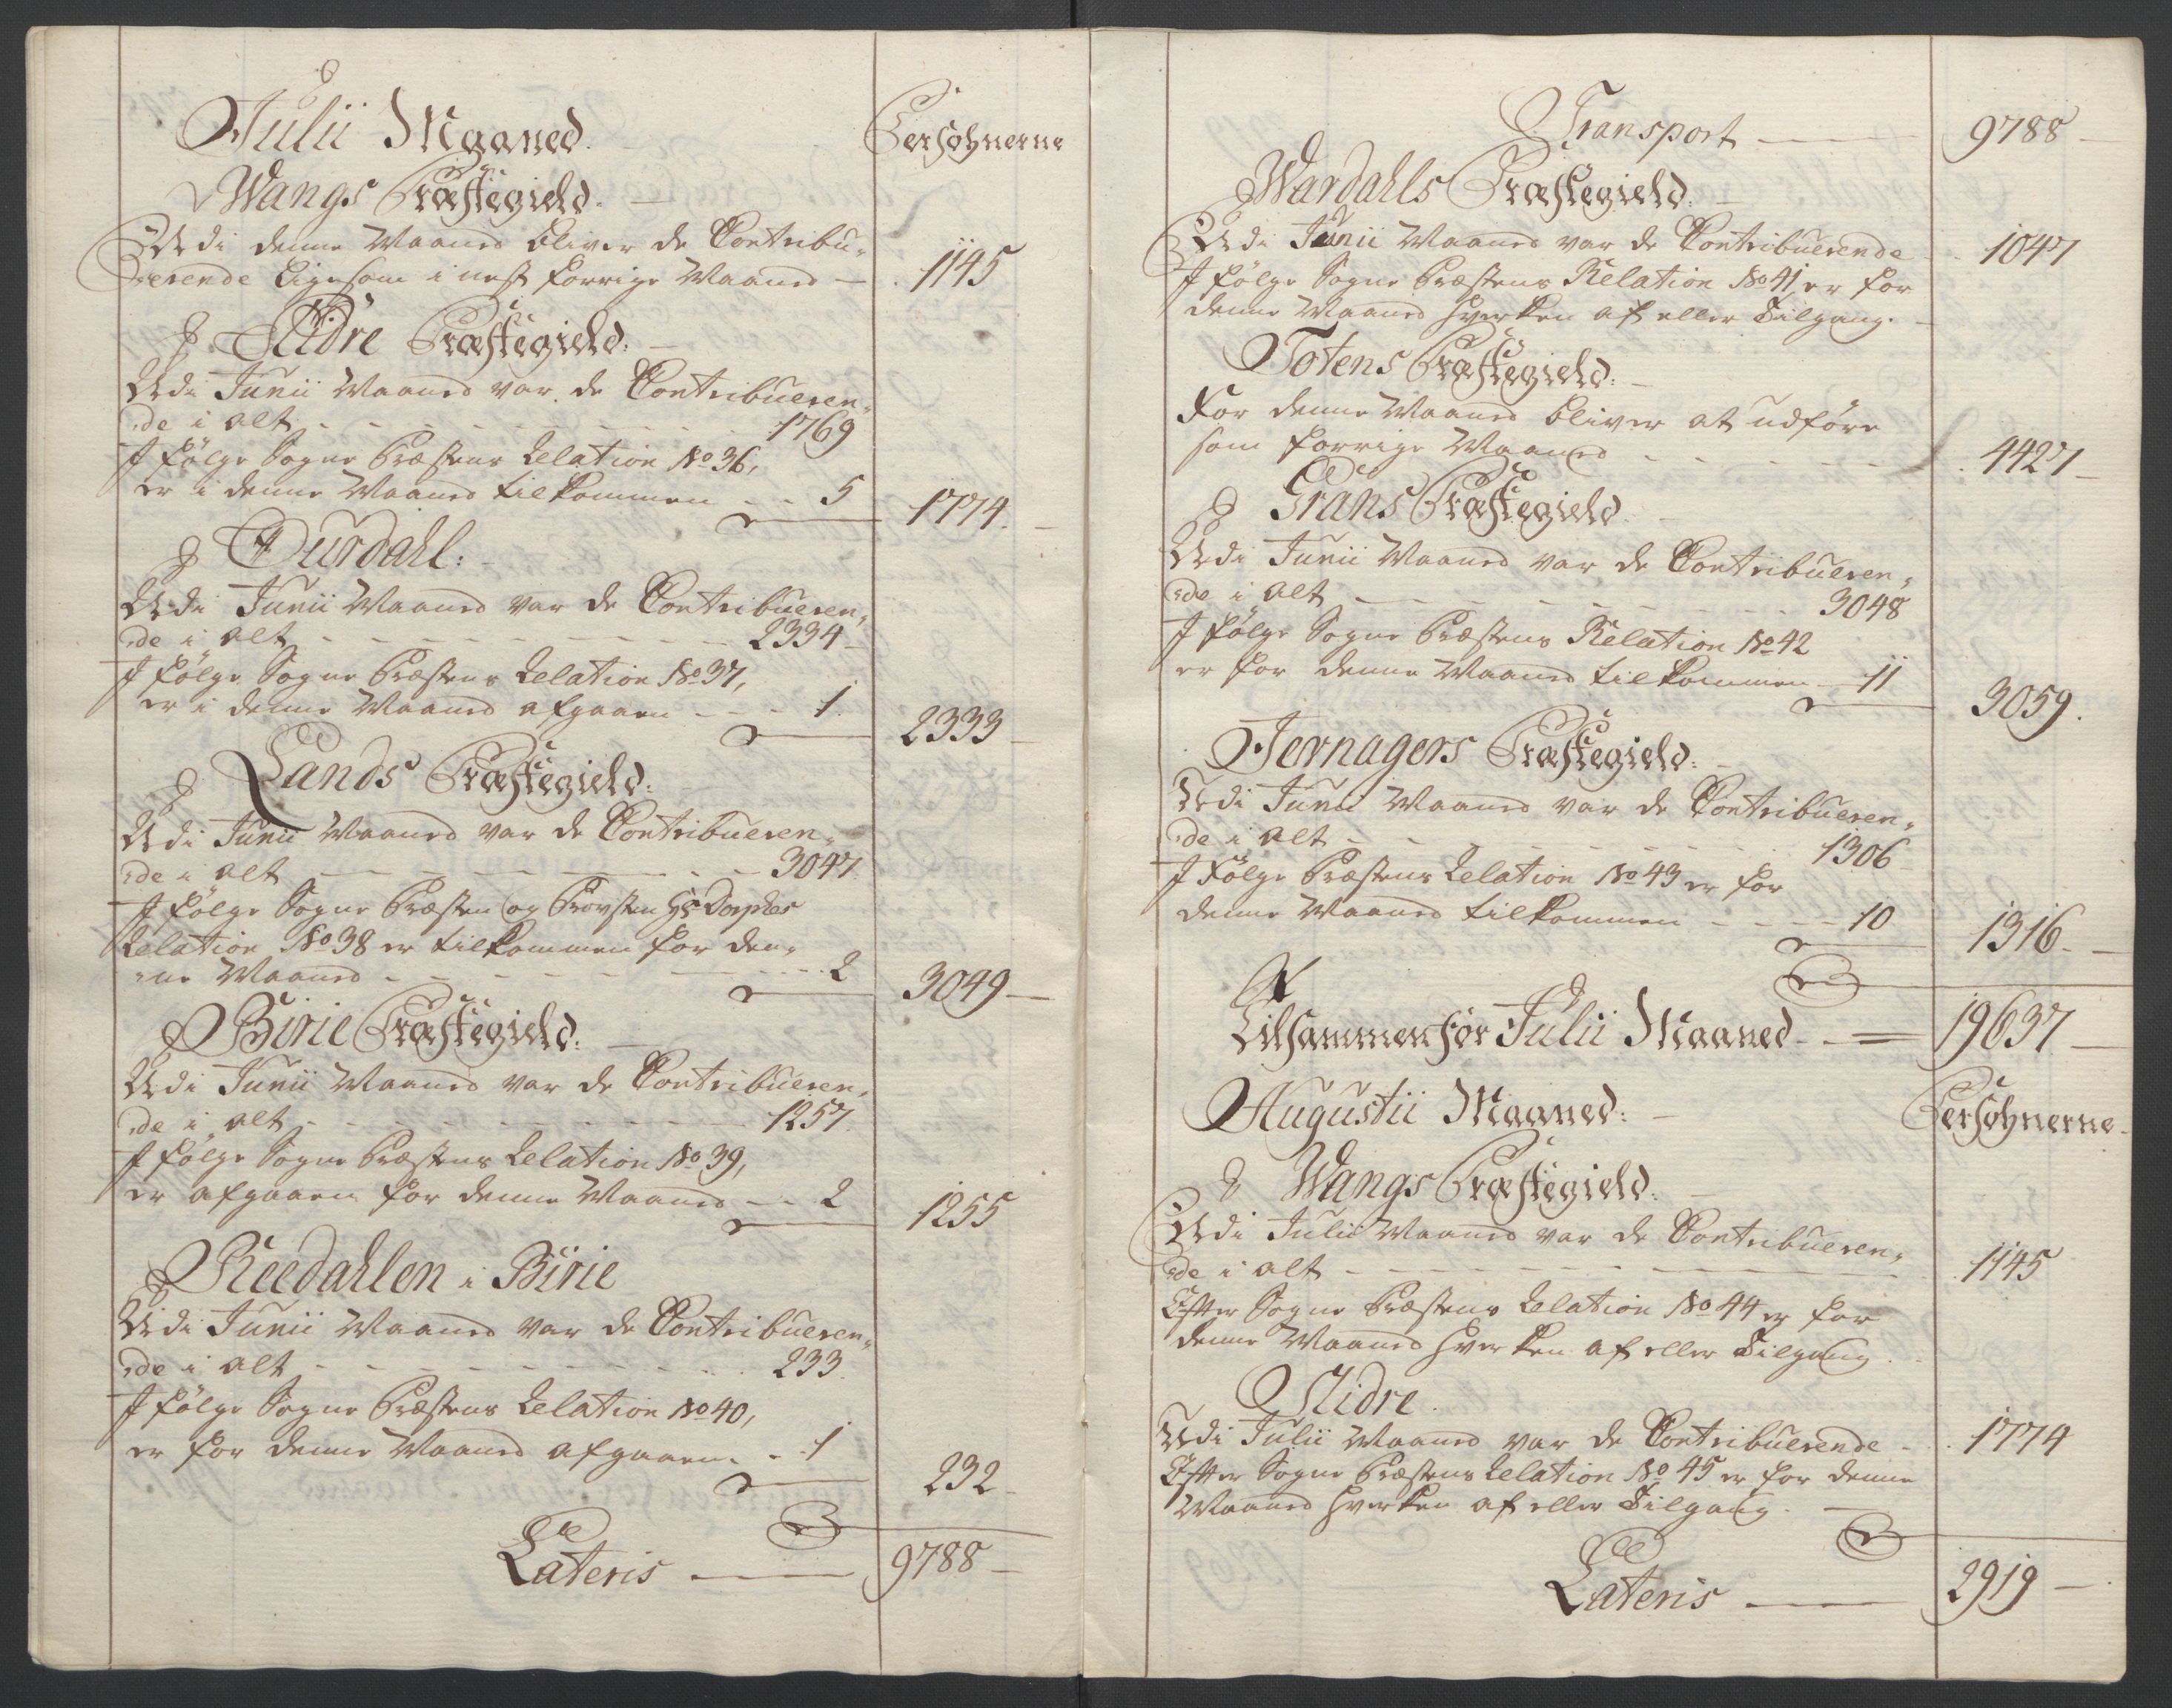 Julii Maaned.
Persohnerne
Wangs Præstegield.
Udi denne Maaned bliver de Contribu-
erende ligesom i nest forrige Maaned — 1145
Slidre Præstegield.
Udi Junii Maaned var de Contribueren-
de i alt - - - 1769
I følge Sogne Præstens Relation No 36,
er i denne Maaned tilkommen - - 5 1774.
Ourdahl:
Udi Junii Maaned var de Contribueren-
de i alt - - - 2334
I følge Sogne Præstens Relation No 37,
er i denne Maaned afgaaen - - - 1. 2333
Lands Præstegield:
Udi Junii Maaned var de Contribueren-
de i alt - - - 3047
I følge Sogne Præsten og Provsten Hr Dorphes
Relation No 38 er tilkommen for den-
ne Maaned - - - 2 3049 —
Birie Præstegield:
Udi Junii Maaned var de Contribueren-
de i alt - - - 1257.
I følge Sogne Præstens Relation No 39,
er afgaaen for denne Maaned - - 2 1255
Reedahlen i Birie
Udi Junii Maaned var de Contribueren-
de i alt - - - 233.
I følge Sogne Præstens Relation No 40,
er for denne Maaned afgaaen. - 1 232
Lateris — 9788 —
Transport — 9788
Wardahls Præstegield:
Udi Junii Maaned var de Contribuerende - 1047
I følge Sogne Præstens Relation No 41 er for
denne Maaned hverken af eller Tilgang.
Totens Præstegield:
For denne Maaned bliver at udføre
som forrige Maaned - - - 4427
Grans Præstegield
Udi Junii Maaned var de Contribueren-
de i alt - - - 3048
I følge Sogne Præstens Relation No 42
er for denne Maaned tilkommen - 11 3059.
Jevnagers Præstegield:
Udi Junii Maaned var de Contribueren-
de i alt - - - 1306
I Følge Præstens Relation No 43 er for
denne Maaned tilkommen - - - 10 1316. —
Tilsammen før Julii Maaned - - 19637 —
Augustii Maaned: — Persohnerne
Wangs Præstegield.
Udi Julii Maaned var de Contribueren-
de i alt - - - 1145
Efter Sogne Præstens Relation No 44 er for
denne Maaned hverken af eller Tilgang.
Slidre.
Udi Julii Maaned var de Contribuerende - 1774
Efter Sogne Præstens Relation No 45 er for denne
Maaned hverken af eller Tilgang. —
Lateris — 2919 —